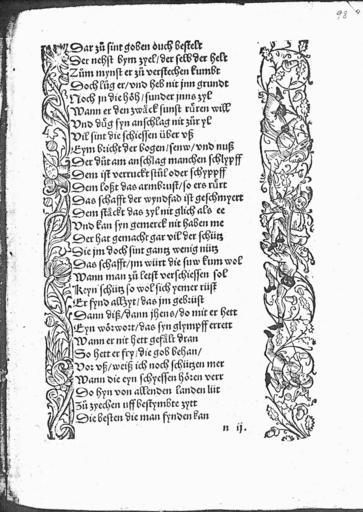 98
Dar zů sint goben důch bestelt
Der nehst bym zyel / der selb der helt
Zům mynst er zů verstechen kumbt
Doch lůg er / vnd heb nit jnn grundt
Noch jn die höh / sunder jnns zyl
Wann er den zwäck sunst rüren will
Vnd důg syn anschlag nit zůr yl
Vil sint die schiessen über vß
Eym bricht der bogen / senw / vnd nuß
Der důt am anschlag manchen schlypff
Dem ist verruckt stůl oder schypff
Dem loßt das armbrust / so ers rürt
Das schafft der wyndfad ist geschmyert
Dem stäckt das zyl nit glich als ee
Vnd kan syn gemerck nit haben me
Der hat gemacht gar vil der schütz
Die jm doch sint gantz wenig nütz
Das schafft / jm würt die suw kum wol
Wann man zů letst verschiessen sol
Keyn schütz so wol sich yemer rüst
Er fynd allzyt / das jm gebrist
Dann diß / dann jhens / do mit er hett
Eyn wörwort / das syn glympff errett
Wann er nit hett gefält dran
So hett er fry / die gob behan /
Vor vß / weiß ich noch schützen mer
Wann die eyn schyessen hören verr
Do hyn von allenden landen lüt
Zů zyechen uff bestymbte zytt
Die besten die man fynden kan
n ij.